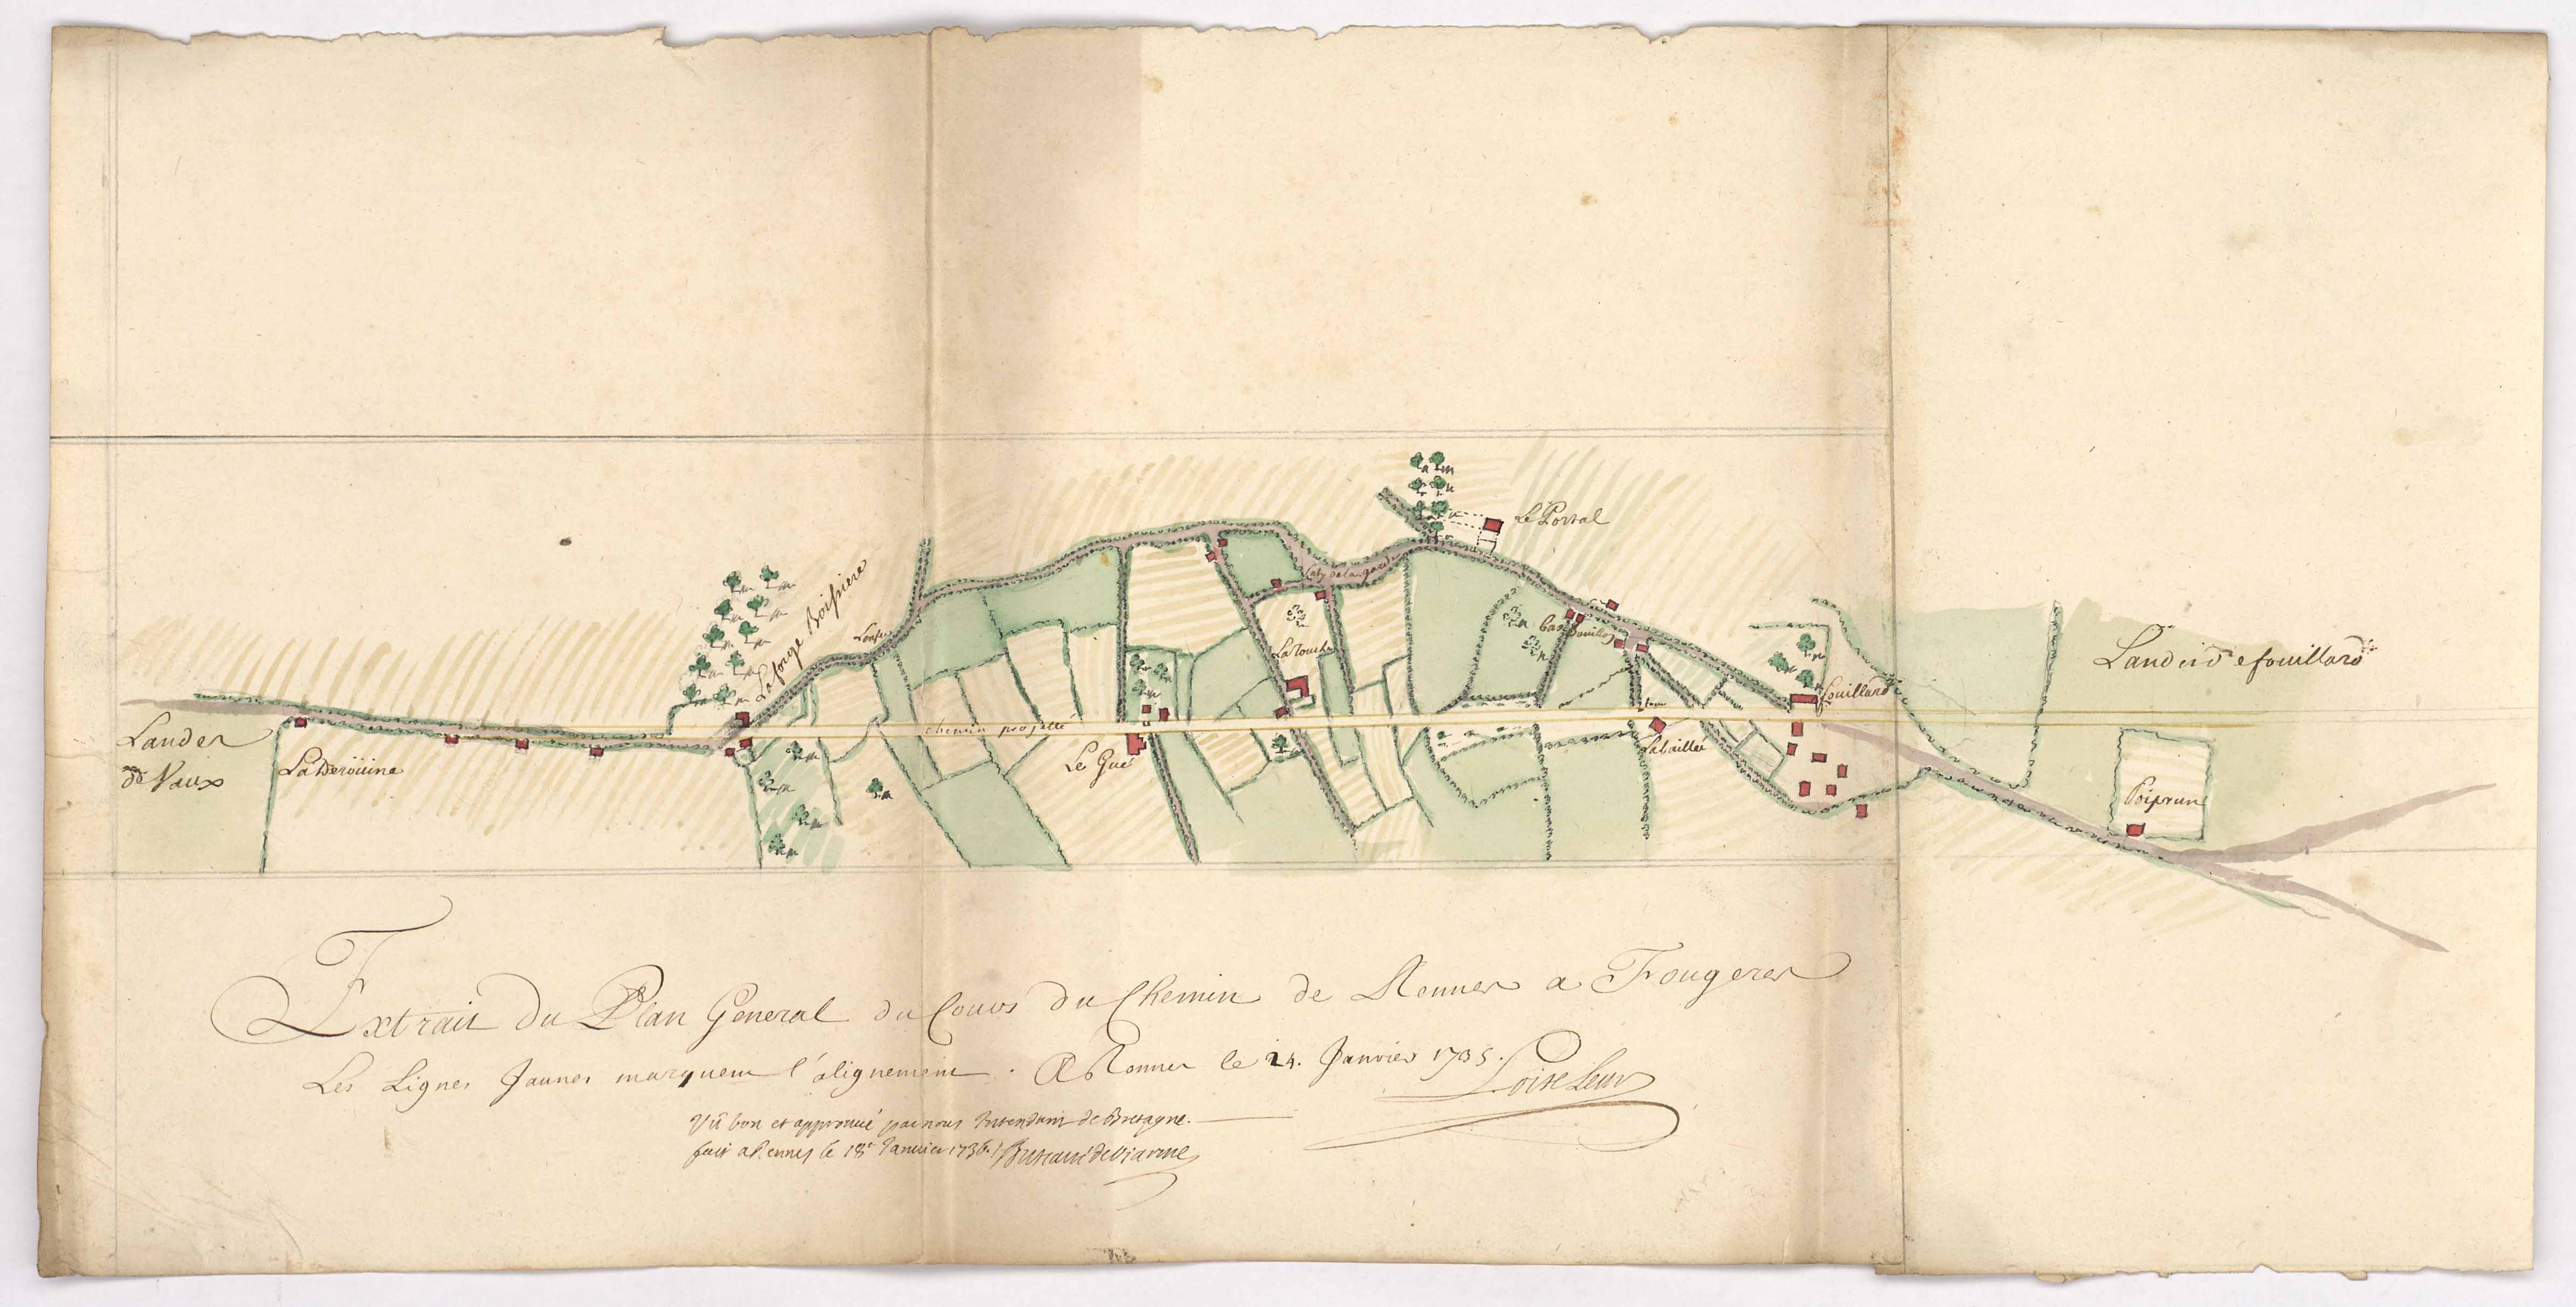 Le Portal
Laty de la gare
La forge Boissiere
Bas fouillo
La Touche
Landes de fouillard
fouillard
chemin projetté
Landes
de Vaux
La Derouine
Le Gué
La baillée
Poiprun
Extrait Du Plan General du Cours du Chemin de Rennes a Fougeres
Les Lignes Jaunes marquent l'alignement. A Rennes le 24. Janvier 1735. Loiseleur
Vû bon et approuvé par nous Intendant de Bretagne.
fait a Rennes le 18e Janvier 1736.